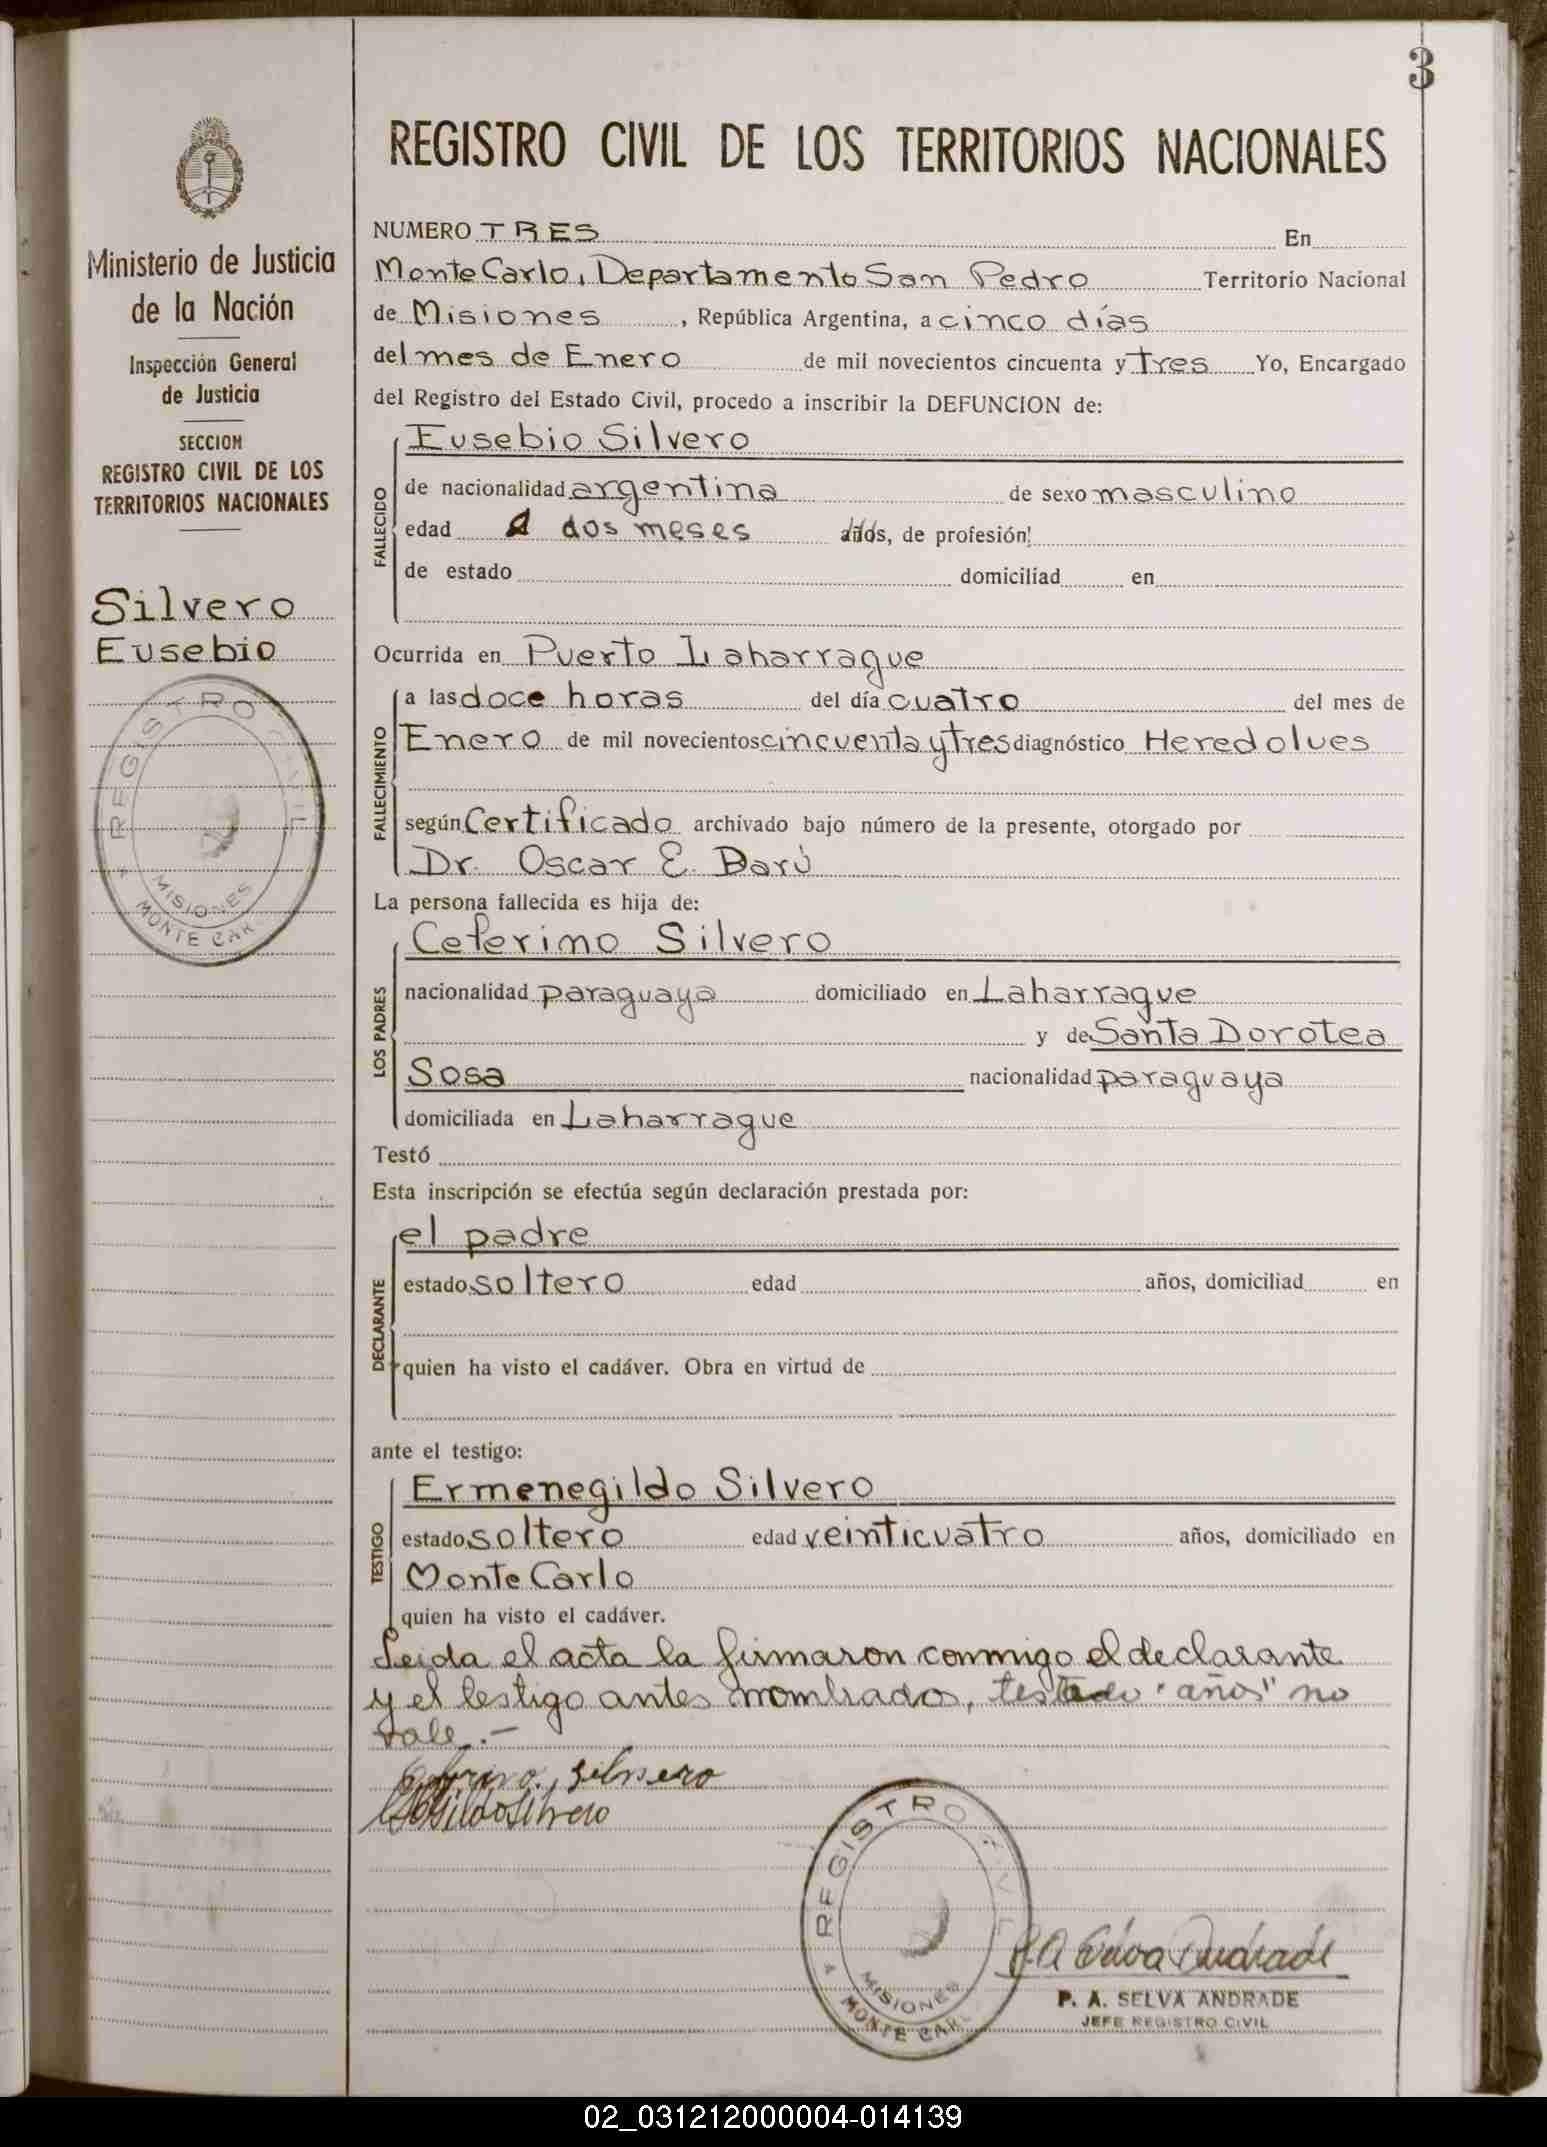 3
REGISTRO CIVIL DE LOS TERRITORIOS NACIONALES
Ministerio de Justicia
de la Nación
Inspección General
de Justicia
SECCION
REGISTRO CIVIL DE LOS
TERRITORIOS NACIONALES
Silvero
Eusebio
REGISTRO CIVIL
MISIONES
MONTE CARLO
NUMERO TRES En
Monte Carlo, Departamento San Pedro Territorio Nacional
de Misiones, República Argentina, a cinco días
del mes de Enero de mil novecientos cincuenta y tres Yo, Encargado
del Registro del Estado Civil, procedo a inscribir la DEFUNCION de:
FALLECIDO
Eusebio Silvero
de nacionalidad argentina de sexo masculino
edad dos meses años, de profesión
de estado domiciliad en
Ocurrida en Puerto Laharrague
FALLECIMIENTO
a las doce horas del día cuatro del mes de
Enero de mil novecientos cincuenta y tres diagnóstico Heredolues
según Certificado archivado bajo número de la presente, otorgado por
Dr. Oscar E. Darú
La persona fallecida es hija de:
LOS PADRES
Ceferino Silvero
nacionalidad paraguaya domiciliado en Laharrague
y de Santa Dorotea
Sosa nacionalidad paraguaya
domiciliada en Laharrague
Testó
Esta inscripción se efectúa según declaración prestada por:
DECLARANTE
el padre
estado soltero edad años, domiciliad en
quien ha visto el cadáver. Obra en virtud de
ante el testigo:
TESTIGO
Ermenegildo Silvero
estado soltero edad veinticuatro años, domiciliado en
Monte Carlo
quien ha visto el cadáver.
Leida el acta la firmaron conmigo el declarante
y el testigo antes nombrado, testado "años" no
vale.-
Silvero
Silvero
REGISTRO CIVIL
MISIONES
MONTE CARLO
P. A. Selva Andrade
P. A. SELVA ANDRADE
JEFE REGISTRO CIVIL
02_031212000004-014139